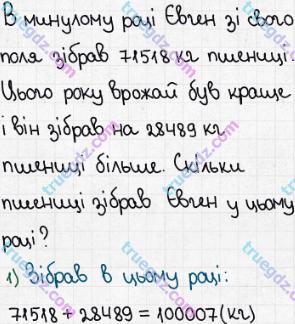 В минулому році Євген зі свого
поля зібрав 71518 кг пшениці.
Цього року врожай був краще
і він зібрав на 28489 кг
пшениці більше. Скільки
пшениці зібрав Євген у цьому
році?
1) Зібрав в цьому році:
71518 + 28489 = 100007 (кг)